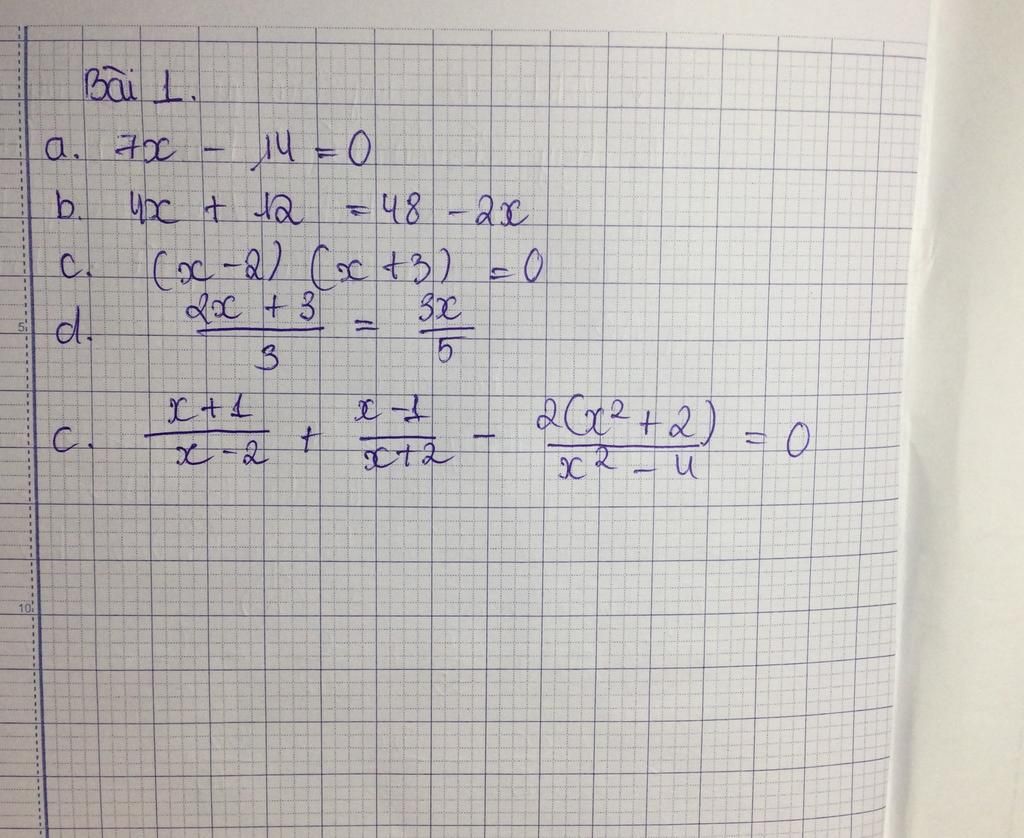 Bài 1.
a. 7x - 14 = 0
b. 4x + 12 = 48 - 2x
c. (x - 2) (x + 3) = 0
d. \frac{2x + 3}{3} = \frac{3x}{5}
c. \frac{x + 1}{x - 2} + \frac{x - 1}{x + 2} - \frac{2(x² + 2)}{x² - 4} = 0
5
10